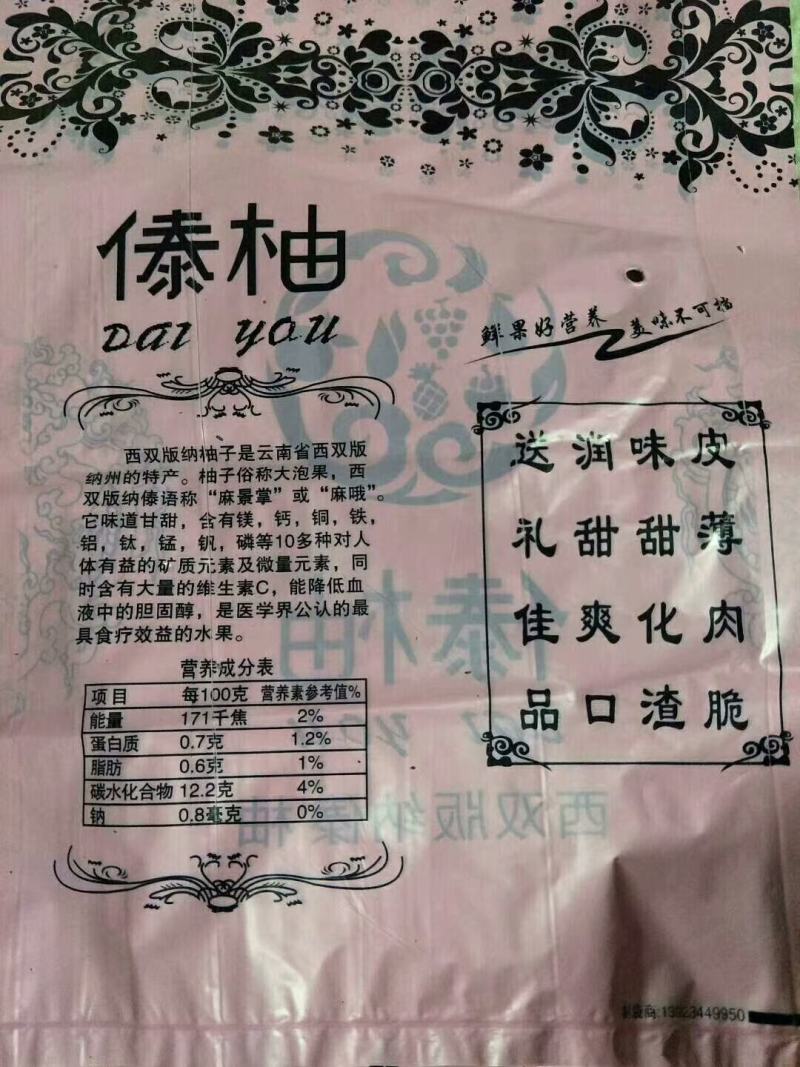 傣柚
DAI YOU
鲜果好营养 美味不可挡
西双版纳柚子是云南省西双版
纳州的特产。柚子俗称大泡果，西
双版纳傣语称“麻景掌”或“麻哦”。
它味道甘甜，含有镁，钙，铜，铁，
铝，钛，锰，钒，磷等10多种对人
体有益的矿质元素及微量元素，同
时含有大量的维生素C，能降低血
液中的胆固醇，是医学界公认的最
具食疗效益的水果。
营养成分表
项目 每100克 营养素参考值%
能量 171千焦 2%
蛋白质 0.7克 1.2%
脂肪 0.6克 1%
碳水化合物 12.2克 4%
钠 0.8毫克 0%
皮薄肉脆
味甜化渣
润甜爽口
送礼佳品
傣柚
西双版纳傣柚
制袋商:13923449950